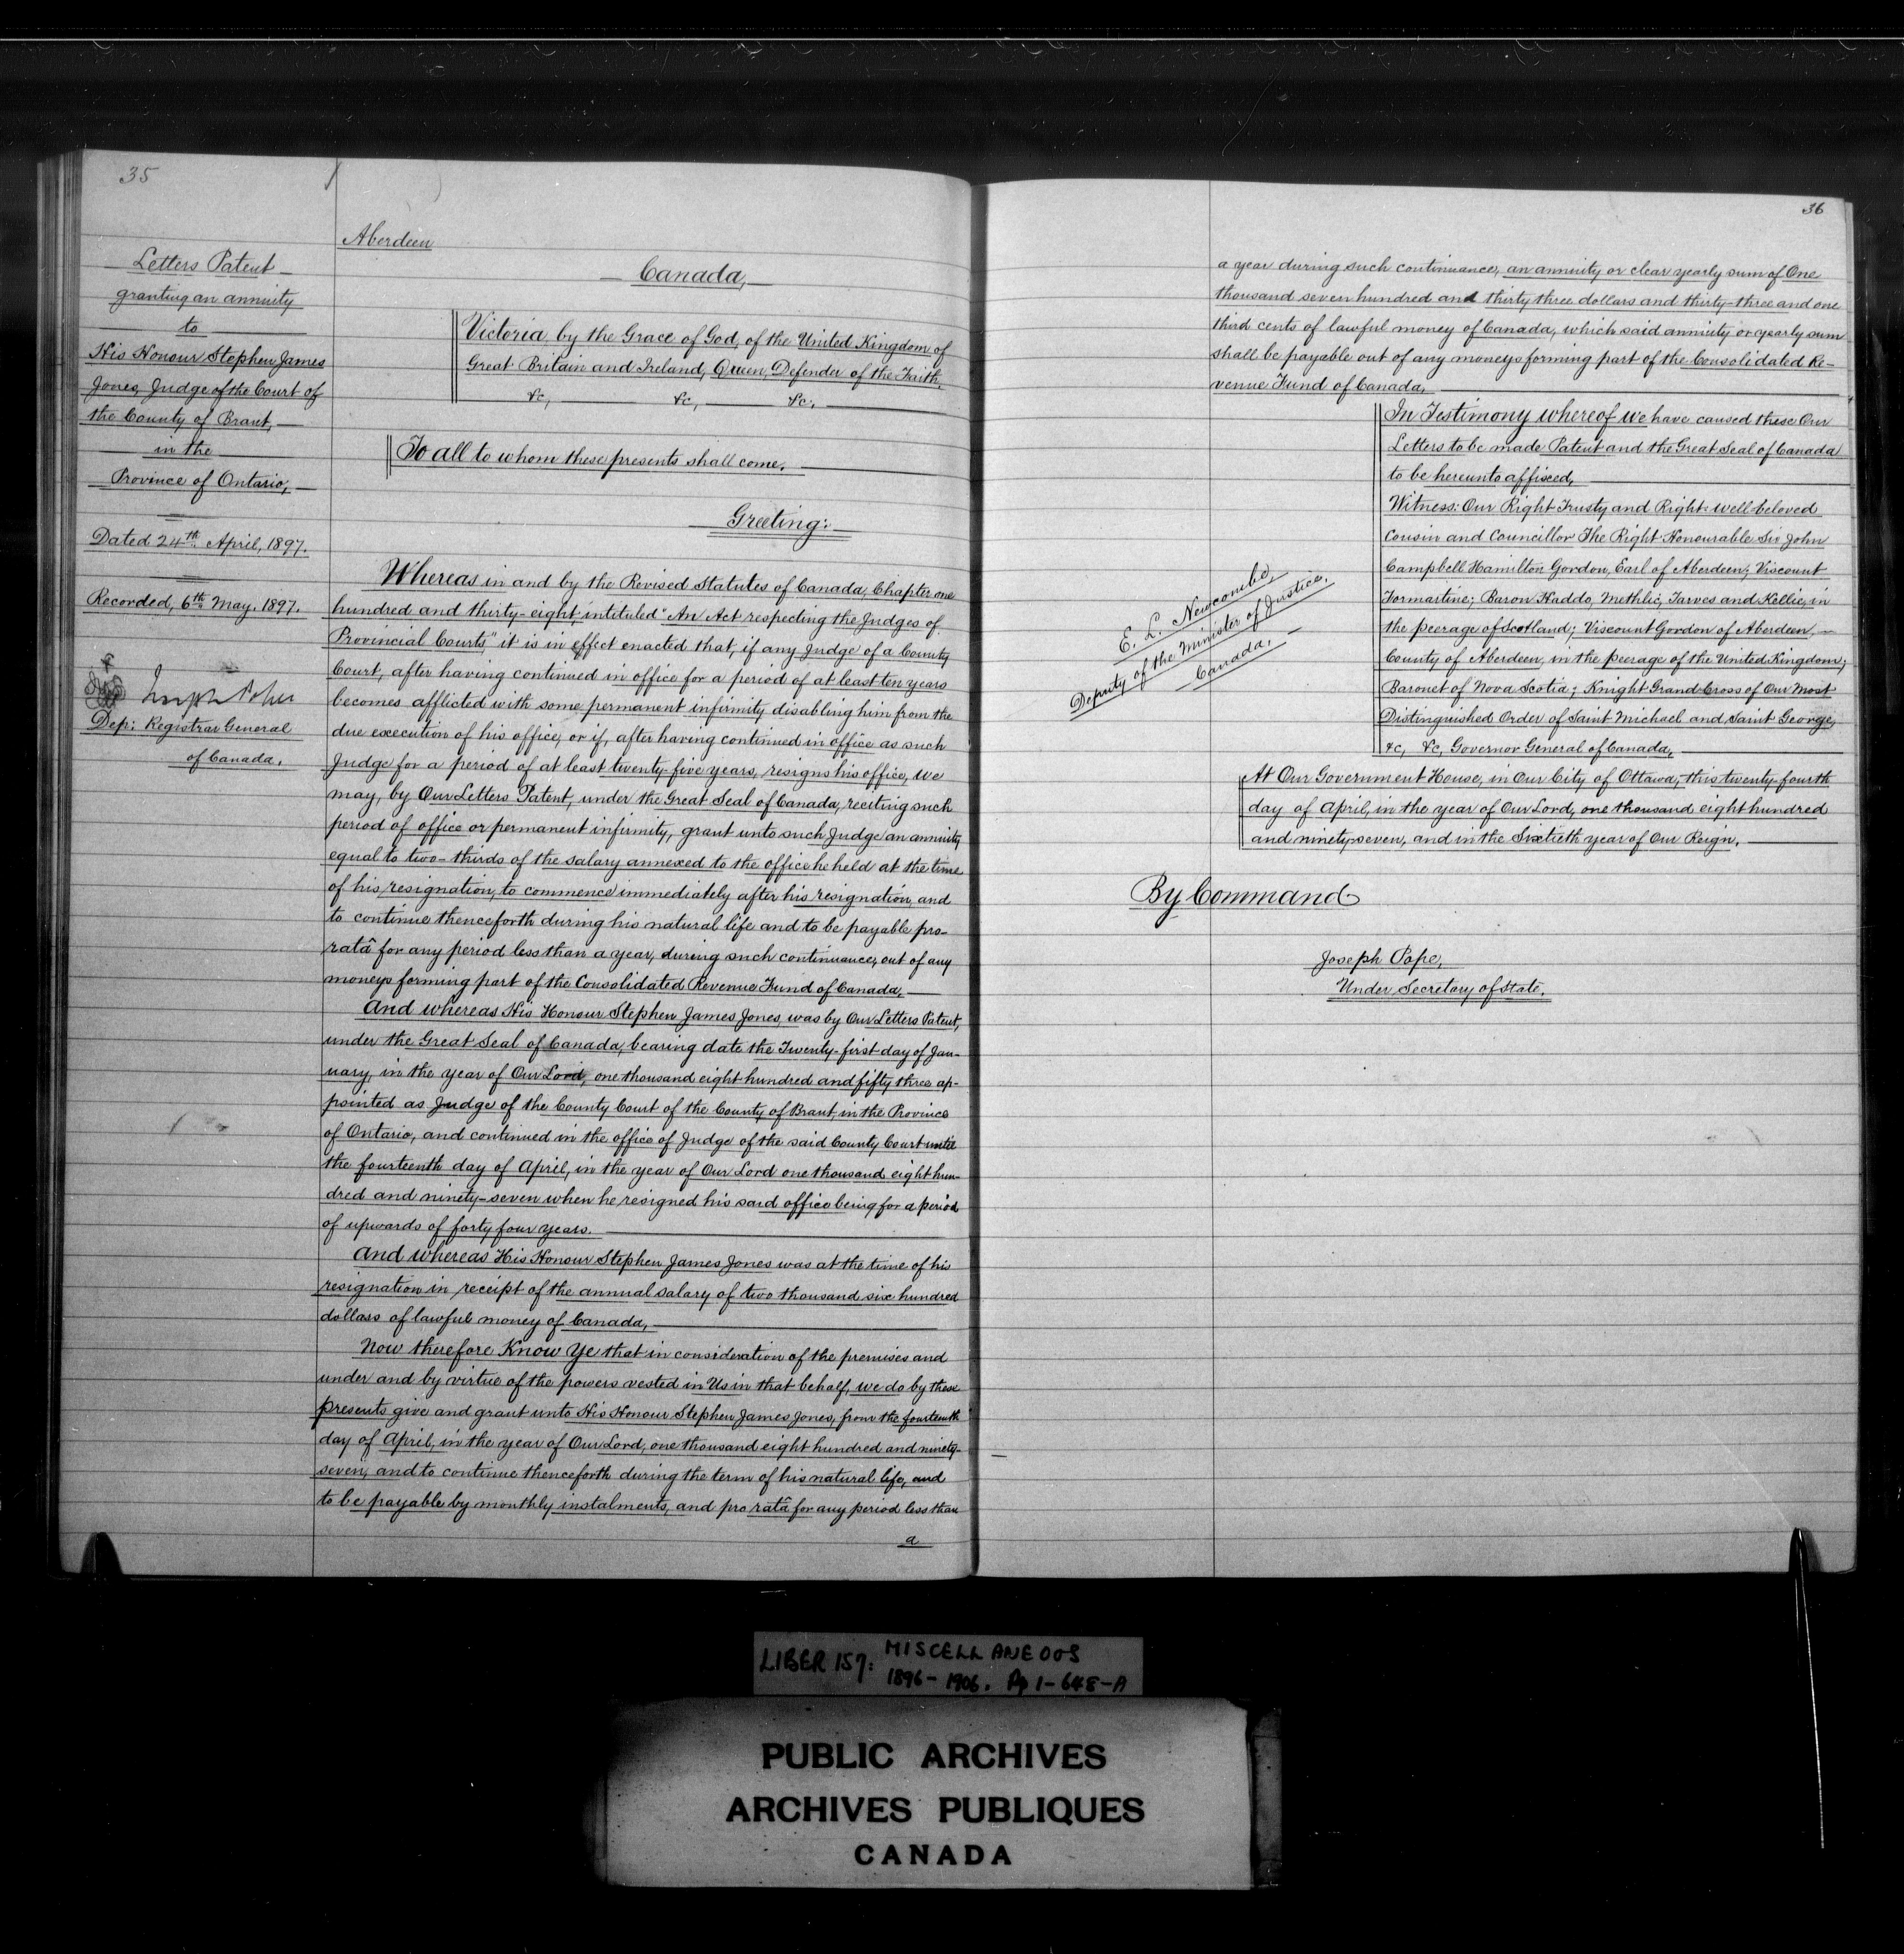 35
Letters Patent
granting an annuity
to
His Honour Stephen James
Jones, Judge of the Court of
the County of Brant,
in the
Province of Ontario,
Dated 24th April, 1897.
Recorded, 6th May. 1897.
Joseph Pope
Dep: Registrar General
of Canada.
Aberdeen
Canada,
Victoria by the Grace of God, of the United Kingdom of
Great Britain and Ireland, Queen, Defender of the Faith,
&c, &c, &c,
To all to whom these presents shall come.
Greeting:
Whereas in and by the Revised Statutes of Canada, Chapter one
hundred and thirty-eight, intituled "An Act respecting the Judges of
Provincial Courts" it is in effect enacted that, if any Judge of a County
Court, after having continued in office for a period of at least ten years
becomes afflicted with some permanent infirmity disabling him from the
due execution of his office, or if, after having continued in office as such
Judge for a period of at least twenty-five years, resigns his office, we
may, by Our Letters Patent, under the Great Seal of Canada, reciting such
period of office or permanent infirmity, grant unto such Judge an annuity
equal to two-thirds of the salary annexed to the office he held at the time
of his resignation, to commence immediately after his resignation, and
to continue thenceforth during his natural life and to be payable pro-
ratâ for any period less than a year, during such continuance, out of any
moneys forming part of the Consolidated Revenue Fund of Canada,
And whereas His Honour Stephen James Jones, was by Our Letters Patent,
under the Great Seal of Canada, bearing date the Twenty-first day of Jan-
uary, in the year of Our Lord, one thousand eight hundred and fifty three ap-
pointed as Judge of the County Court of the County of Brant, in the Province
of Ontario, and continued in the office of Judge of the said County Court until
the fourteenth day of April, in the year of Our Lord one thousand eight hun-
dred and ninety-seven when he resigned his said office being for a period
of upwards of forty four years.
And whereas His Honour Stephen James Jones was at the time of his
resignation in receipt of the annual salary of two thousand six hundred
dollars of lawful money of Canada,
Now therefore Know Ye that in consideration of the premises and
under and by virtue of the powers vested in Us in that behalf, we do by these
presents give and grant unto His Honour Stephen James Jones, from the fourteenth
day of April, in the year of Our Lord, one thousand eight hundred and ninety-
seven, and to continue thenceforth during the term of his natural life, and
to be payable by monthly instalments, and pro ratâ for any period less than
a
36
a year during such continuance, an annuity or clear yearly sum of One
thousand seven hundred and thirty three dollars and thirty-three and one
third cents of lawful money of Canada, which said annuity or yearly sum
shall be payable out of any moneys forming part of the Consolidated Re-
venue Fund of Canada,
In Testimony whereof we have caused these Our
Letters to be made Patent and the Great Seal of Canada
to be hereunto affixed,
Witness: Our Right Trusty and Right well-beloved
Cousin and Councillor The Right Honourable Sir John
Campbell Hamilton Gordon, Earl of Aberdeen; Viscount
Formartine; Baron Haddo, Methlic, Tarves and Kellie, in
the peerage of Scotland; Viscount Gordon of Aberdeen,
County of Aberdeen, in the peerage of the United Kingdom;
Baronet of Nova Scotia; Knight Grand Cross of Our Most
Distinguished Order of Saint Michael and Saint George,
&c, &c, Governor General of Canada,
At Our Government House, in Our City of Ottawa, this twenty-fourth
day of April, in the year of Our Lord, one thousand eight hundred
and ninety-seven, and in the Sixtieth year of Our Reign.
E. L. Newcombe,
Deputy of the Minister of Justice,
Canada.
By Command
Joseph Pope,
Under Secretary of State.
LIBER 157: MISCELLANEOUS
1896-1906. Pp 1-648-A
PUBLIC ARCHIVES
ARCHIVES PUBLIQUES
CANADA